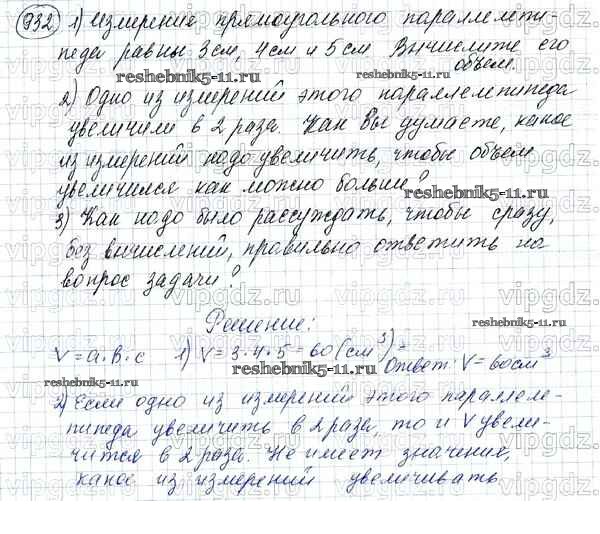 932 1) Измерение прямоугольного параллелепи-
педа равны 3см, 4см и 5см Вычислите его
объем.
reshebnik5-11.ru
2) Одно из измерений этого параллелепипеда
увеличили в 2 раза. Как Вы думаете, какое
из измерений надо увеличить, чтобы объем
увеличился как можно больше?
reshebnik5-11.ru
3) Как надо было рассуждать, чтобы сразу,
без вычислений, правильно ответить на
вопрос задачи?
Решение:
reshebnik5-11.ru
V = a·b·c 1) V = 3·4·5 = 60 (см³) =
Ответ: V = 60см³
reshebnik5-11.ru
reshebnik5-11.ru
2) Если одно из измерений этого параллеле-
пипеда увеличить в 2 раза, то и V увели-
чится в 2 раза. Не имеет значения,
какое из измерений увеличивать
vipgdz.ru